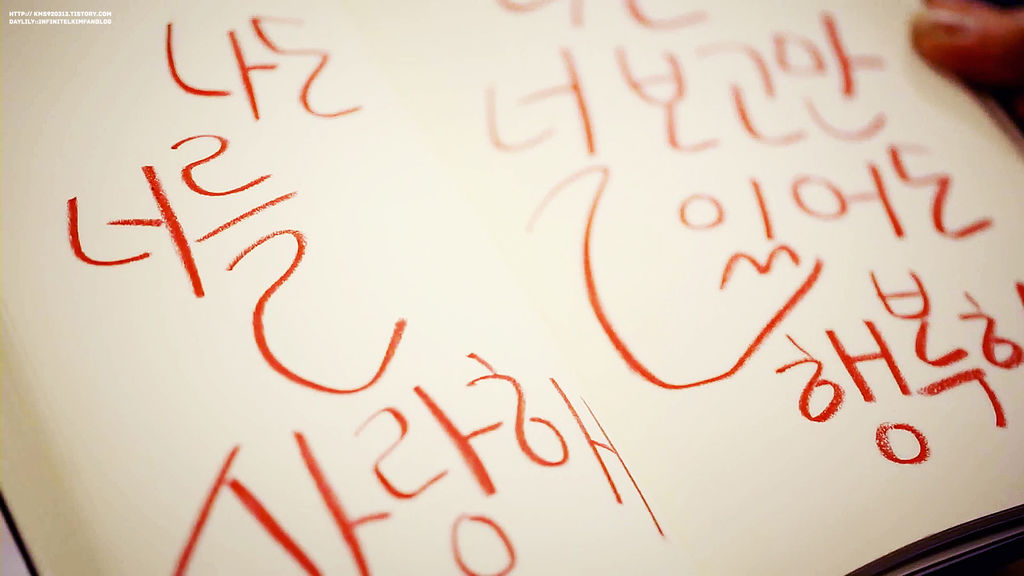 HTTP:// KMS920313.TISTORY.COM
DAYLILY::INFINITELKIMFANBLOG
나는
너를
사랑해
너 보고만
있어도
행복